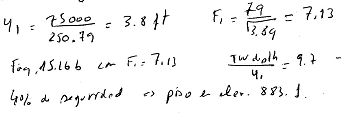 y₁ = 75000 / 250.79 = 3.8 ft    F₁ = 79 / √3.8g = 7.13
Fag, 15.16 b con F₁ = 7.13    TW depth / y₁ = 9.7 -
40% de seguridad => piso en elev. 883.